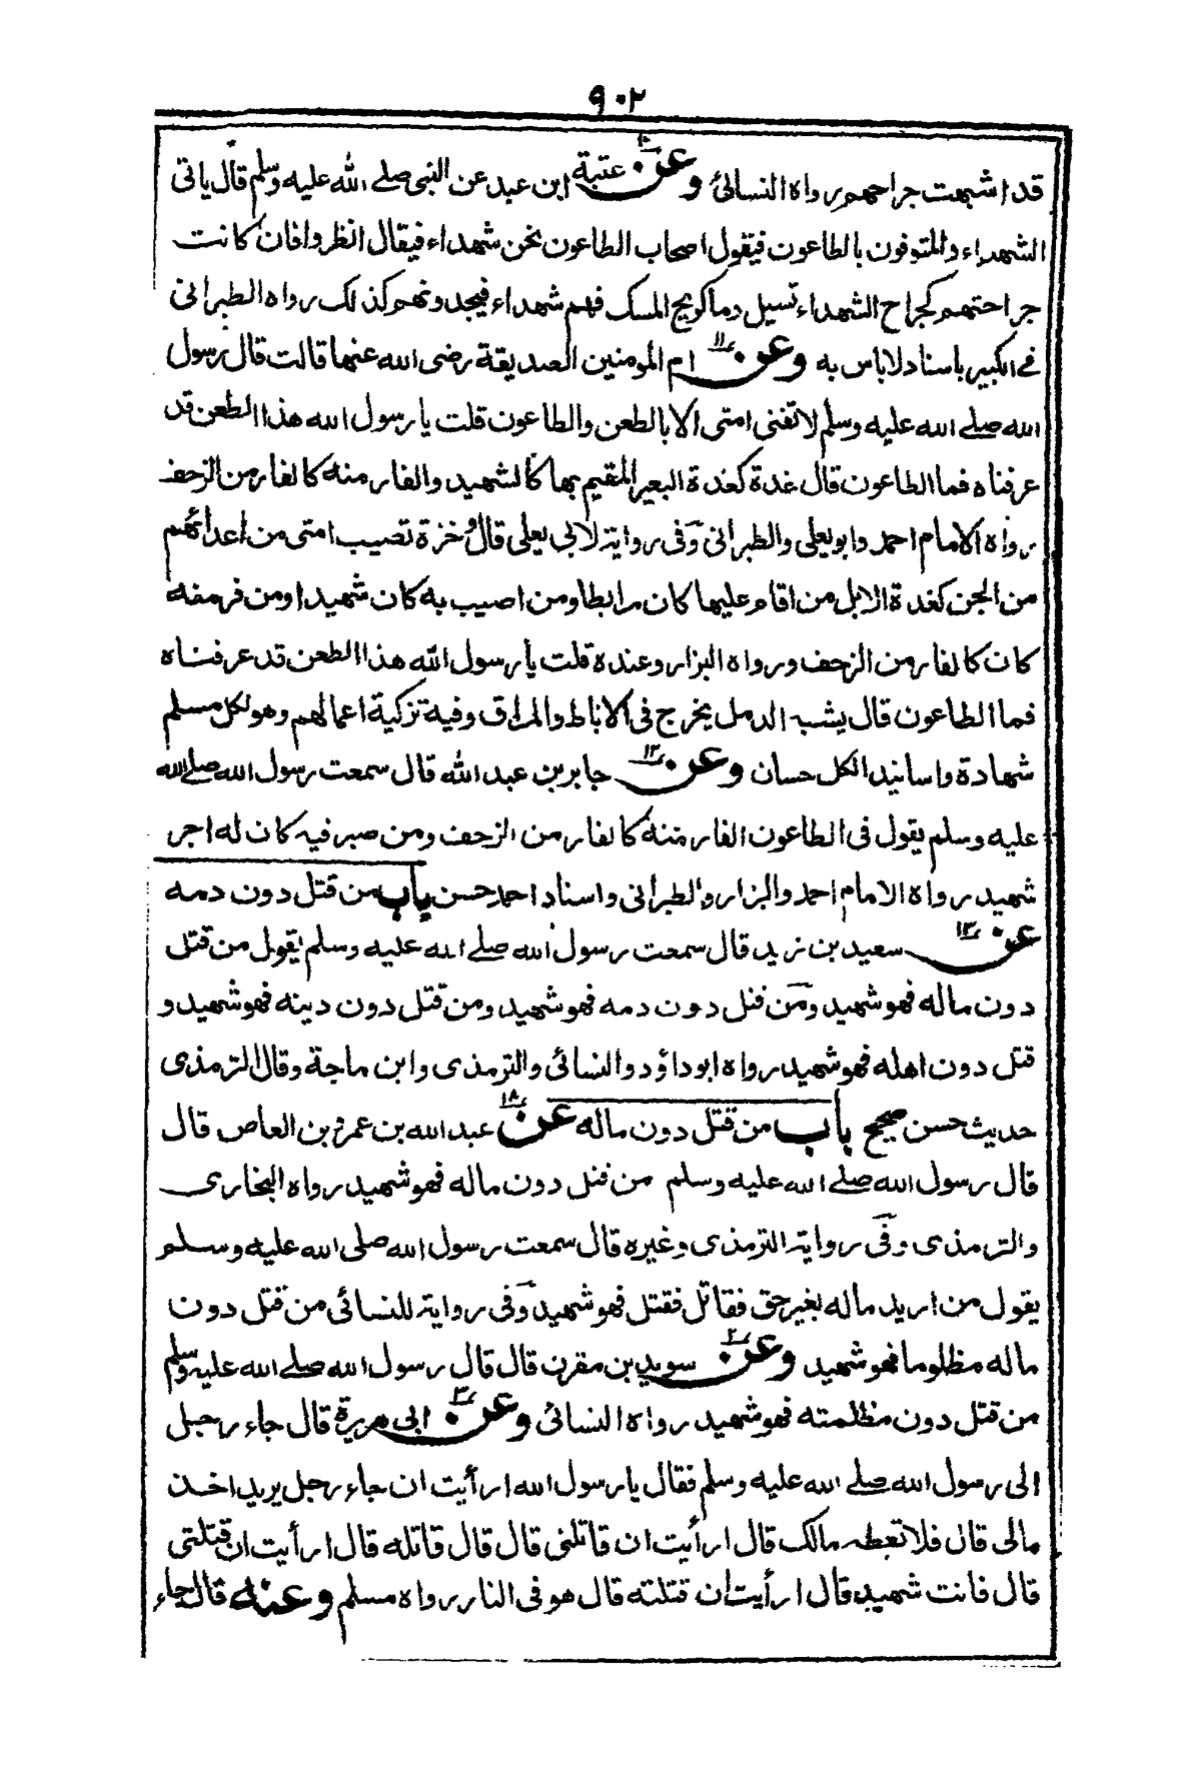 ٩٠٢
قد اشبهت جراحهم رواه النسائی وعن عتبة ابن عبد عن النبی صلے الله علیه وسلم قال یاتی
الشهداء والمتوفون بالطاعون فیقول اصحاب الطاعون نحن شهداء فیقال انظروا فان کانت
جراحتهم کجراح الشهداء تسیل دما کریح المسک فهم شهداء فیجدونهم کذلک رواه الطبرانی
فی الکبیر باسناد لاباس به وعن ١١ ام المومنین الصدیقة رضی الله عنها قالت قال رسول
الله صلے الله علیه وسلم لا تفنی امتی الا بالطعن والطاعون قلت یا رسول الله هذا الطعن قد
عرفناه فما الطاعون قال غدة کغدة البعیر المقیم بها کالشهید والفار منه کالفار من الزحف
رواه الامام احمد وابو یعلی والطبرانی وفی روایة لابی یعلی قال وخزة تصیب امتی من اعدائهم
من الجن کغدة الابل من اقام علیها کان مرابطا ومن اصیب به کان شهیدا ومن فر منه
کان کالفار من الزحف ورواه البزار وعنده قلت یا رسول الله هذا الطعن قد عرفناه
فما الطاعون قال یشبه الدمل یخرج فی الاباط والمراق وفیه تزکیة اعمالهم وهو لکل مسلم
شهادة واسانید الکل حسان وعن ١٢ جابر بن عبد الله قال سمعت رسول الله صلے الله
علیه وسلم یقول فی الطاعون الفار منه کالفار من الزحف ومن صبر فیه کان له اجر
شهید رواه الامام احمد والبزار والطبرانی واسناد احمد حسن باب من قتل دون دمه
عن ١٣ سعید بن زید قال سمعت رسول الله صلے الله علیه وسلم یقول من قتل
دون ماله فهو شهید ومن قتل دون دمه فهو شهید ومن قتل دون دینه فهو شهید و
قتل دون اهله فهو شهید رواه ابو داؤد والنسائی والترمذی وابن ماجة وقال الترمذی
حدیث حسن صحیح باب من قتل دون ماله عن عبد الله بن عمرو بن العاص قال
قال رسول الله صلے الله علیه وسلم من قتل دون ماله فهو شهید رواه البخاری
والترمذی وفی روایة الترمذی وغیره قال سمعت رسول الله صلی الله علیه وسلم
یقول من ارید ماله بغیر حق فقاتل فقتل فهو شهید وفی روایة للنسائی من قتل دون
ماله مظلوما فهو شهید وعن ٢ سوید بن مقرن قال قال رسول الله صلے الله علیه وسلم
من قتل دون مظلمته فهو شهید رواه النسائی وعن ٣ ابی هریرة قال جاء رجل
الی رسول الله صلے الله علیه وسلم فقال یا رسول الله ارأیت ان جاء رجل یرید اخذ
مالی قال فلا تعطه مالک قال ارأیت ان قاتلنی قال قال قاتله قال ارأیت ان قتلتی
قال فانت شهید قال ارأیت ان قتلته قال هو فی النار رواه مسلم وعنه قال جاء